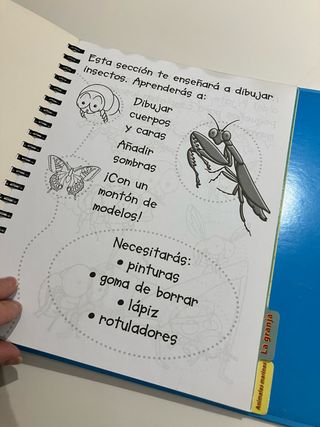 Esta sección te enseñará a dibujar
insectos. Aprenderás a:
Dibujar
cuerpos
y caras
Añadir
sombras
¡Con un
montón de
modelos!
Necesitarás:
• pinturas
• goma de borrar
• lápiz
• rotuladores
La granja
Animales marinos